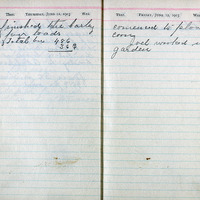 THER. THURSDAY, JUNE 12, 1913 WEA.
finished the barly
four loads
Total one 486
367
THER. FRIDAY, JUNE 13, 1913 WEA.
comenced to plow
corn
Joel worked in
garden